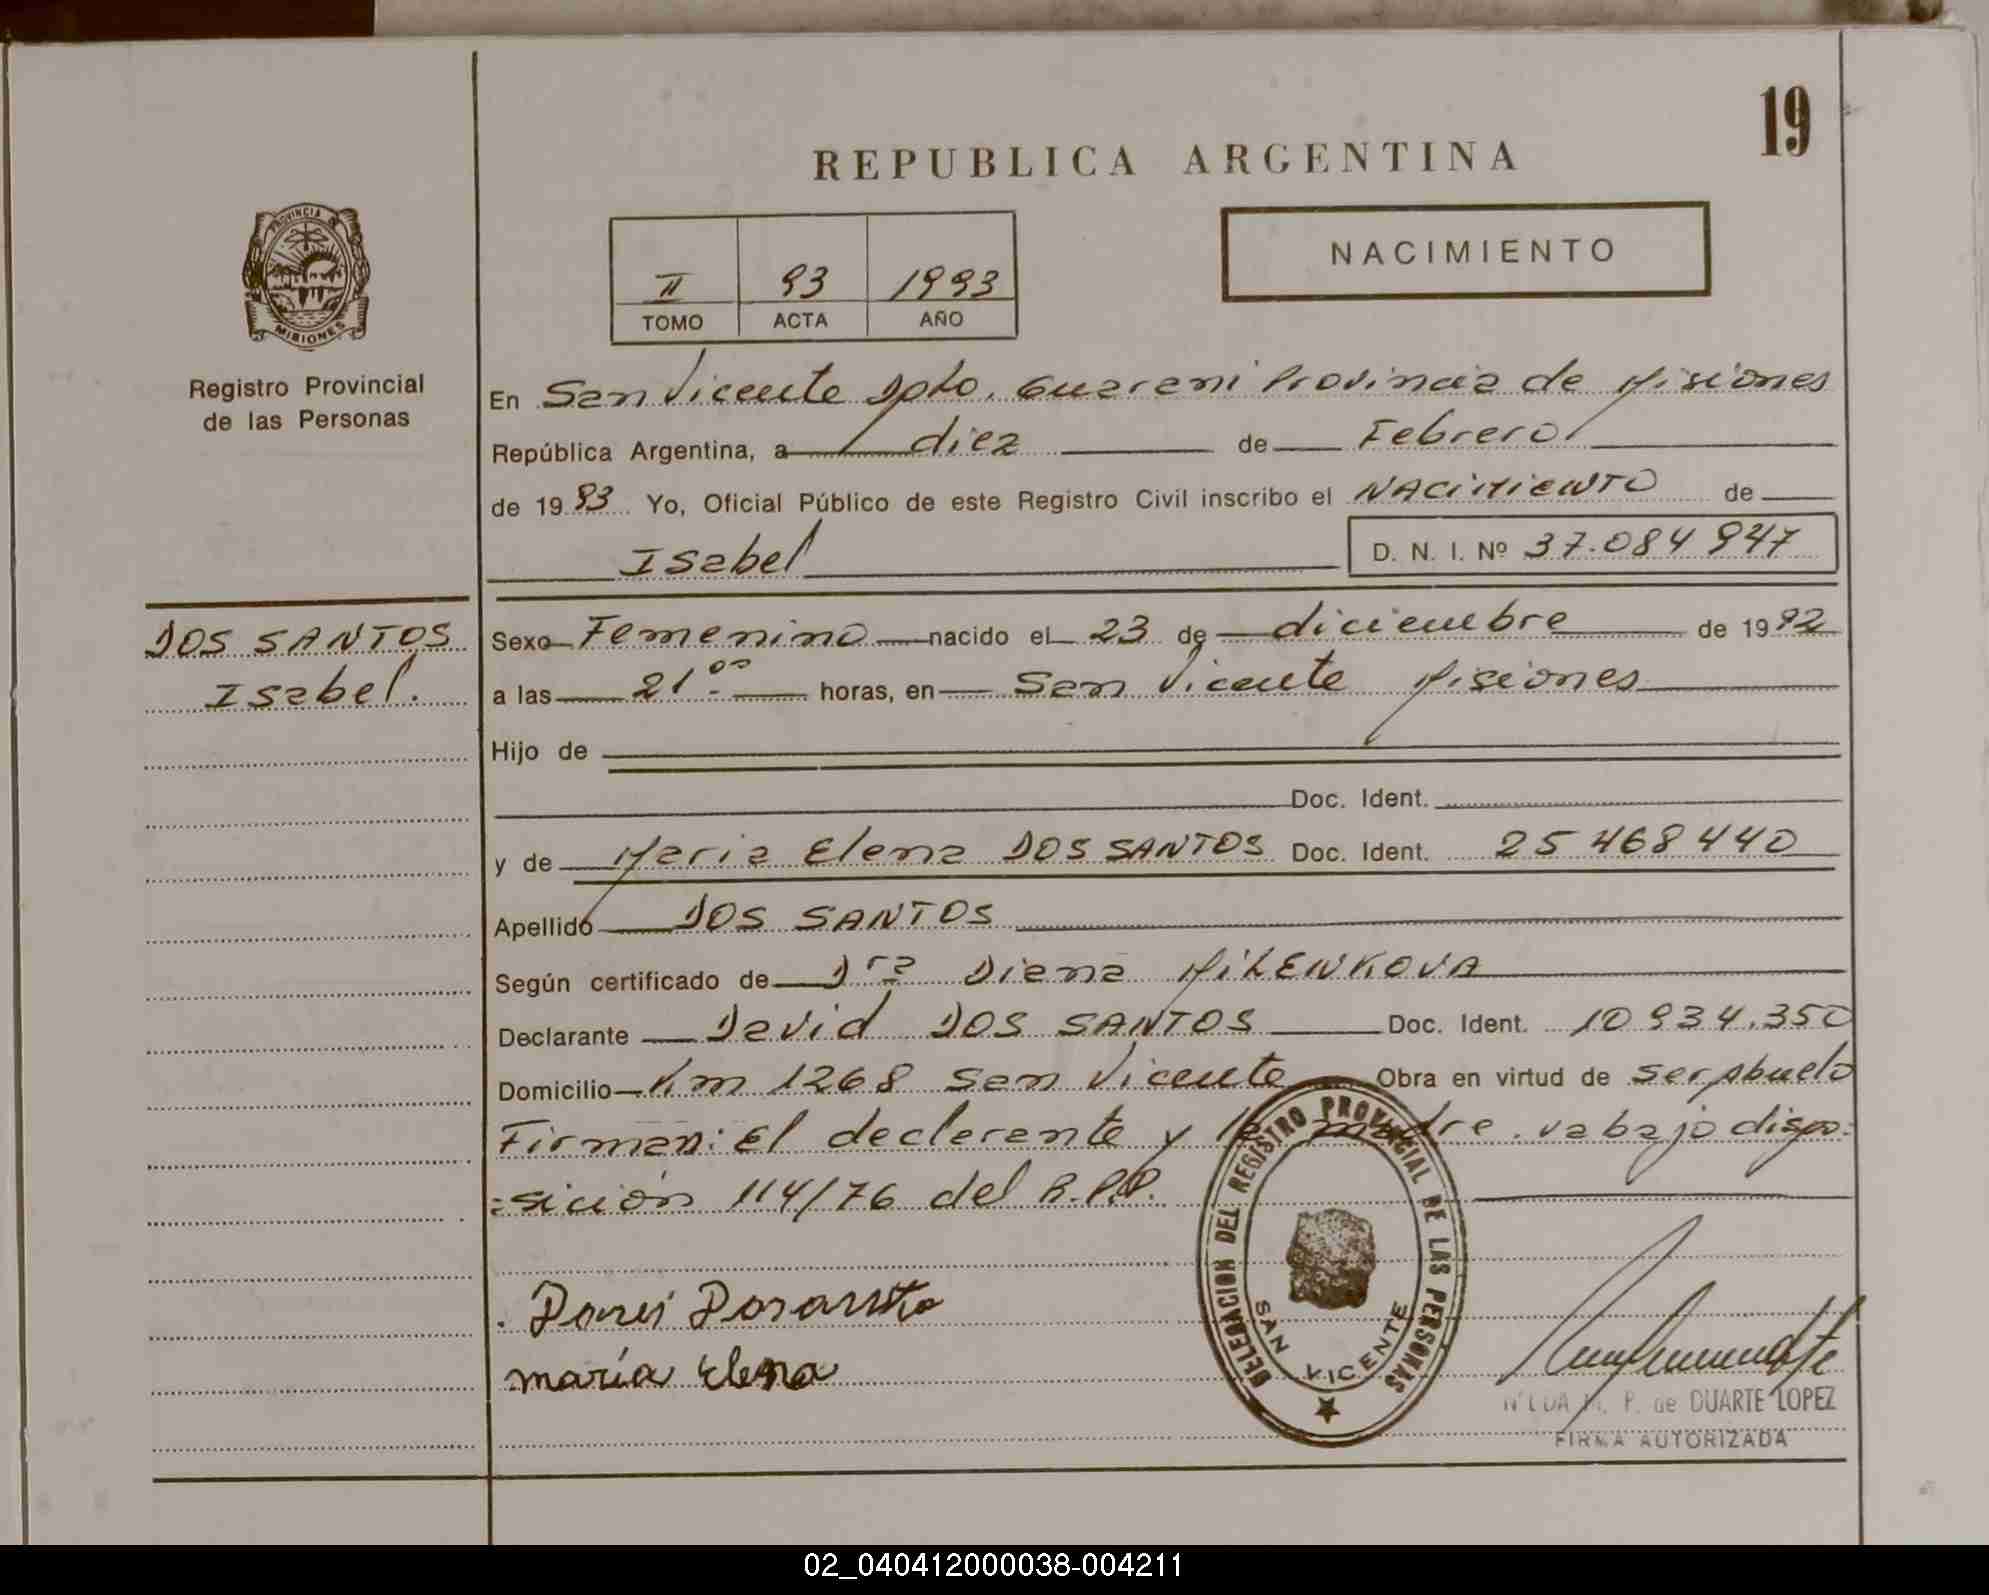 19
REPUBLICA ARGENTINA
PROVINCIA DE
MISIONES
Registro Provincial
de las Personas
II 93 1993
TOMO ACTA AÑO
NACIMIENTO
En San Vicente Dpto. Guarani Provincia de Misiones
República Argentina, a diez de Febrero
de 19 93 Yo, Oficial Público de este Registro Civil inscribo el NACIMIENTO de
Isabel D. N. I. Nº 37.084 947
DOS SANTOS
Isabel.
Sexo Femenino nacido el 23 de diciembre de 19 92
a las 21 00 horas, en San Vicente Misiones
Hijo de
Doc. Ident.
y de Maria Elena DOS SANTOS Doc. Ident. 25 468 440
Apellido DOS SANTOS
Según certificado de Dra Diana MILENKOVA
Declarante David DOS SANTOS Doc. Ident. 10 934.350
Domicilio Km 1268 San Vicente Obra en virtud de ser abuelo
Firman: El declarante y la madre. va bajo dispo=
=sición 114/76 del R.P.P.
maría Elena
DELEGACION DEL REGISTRO PROVINCIAL DE LAS PERSONAS
SAN VICENTE
P. de DUARTE LOPEZ
FIRMA AUTORIZADA
02_040412000038-004211